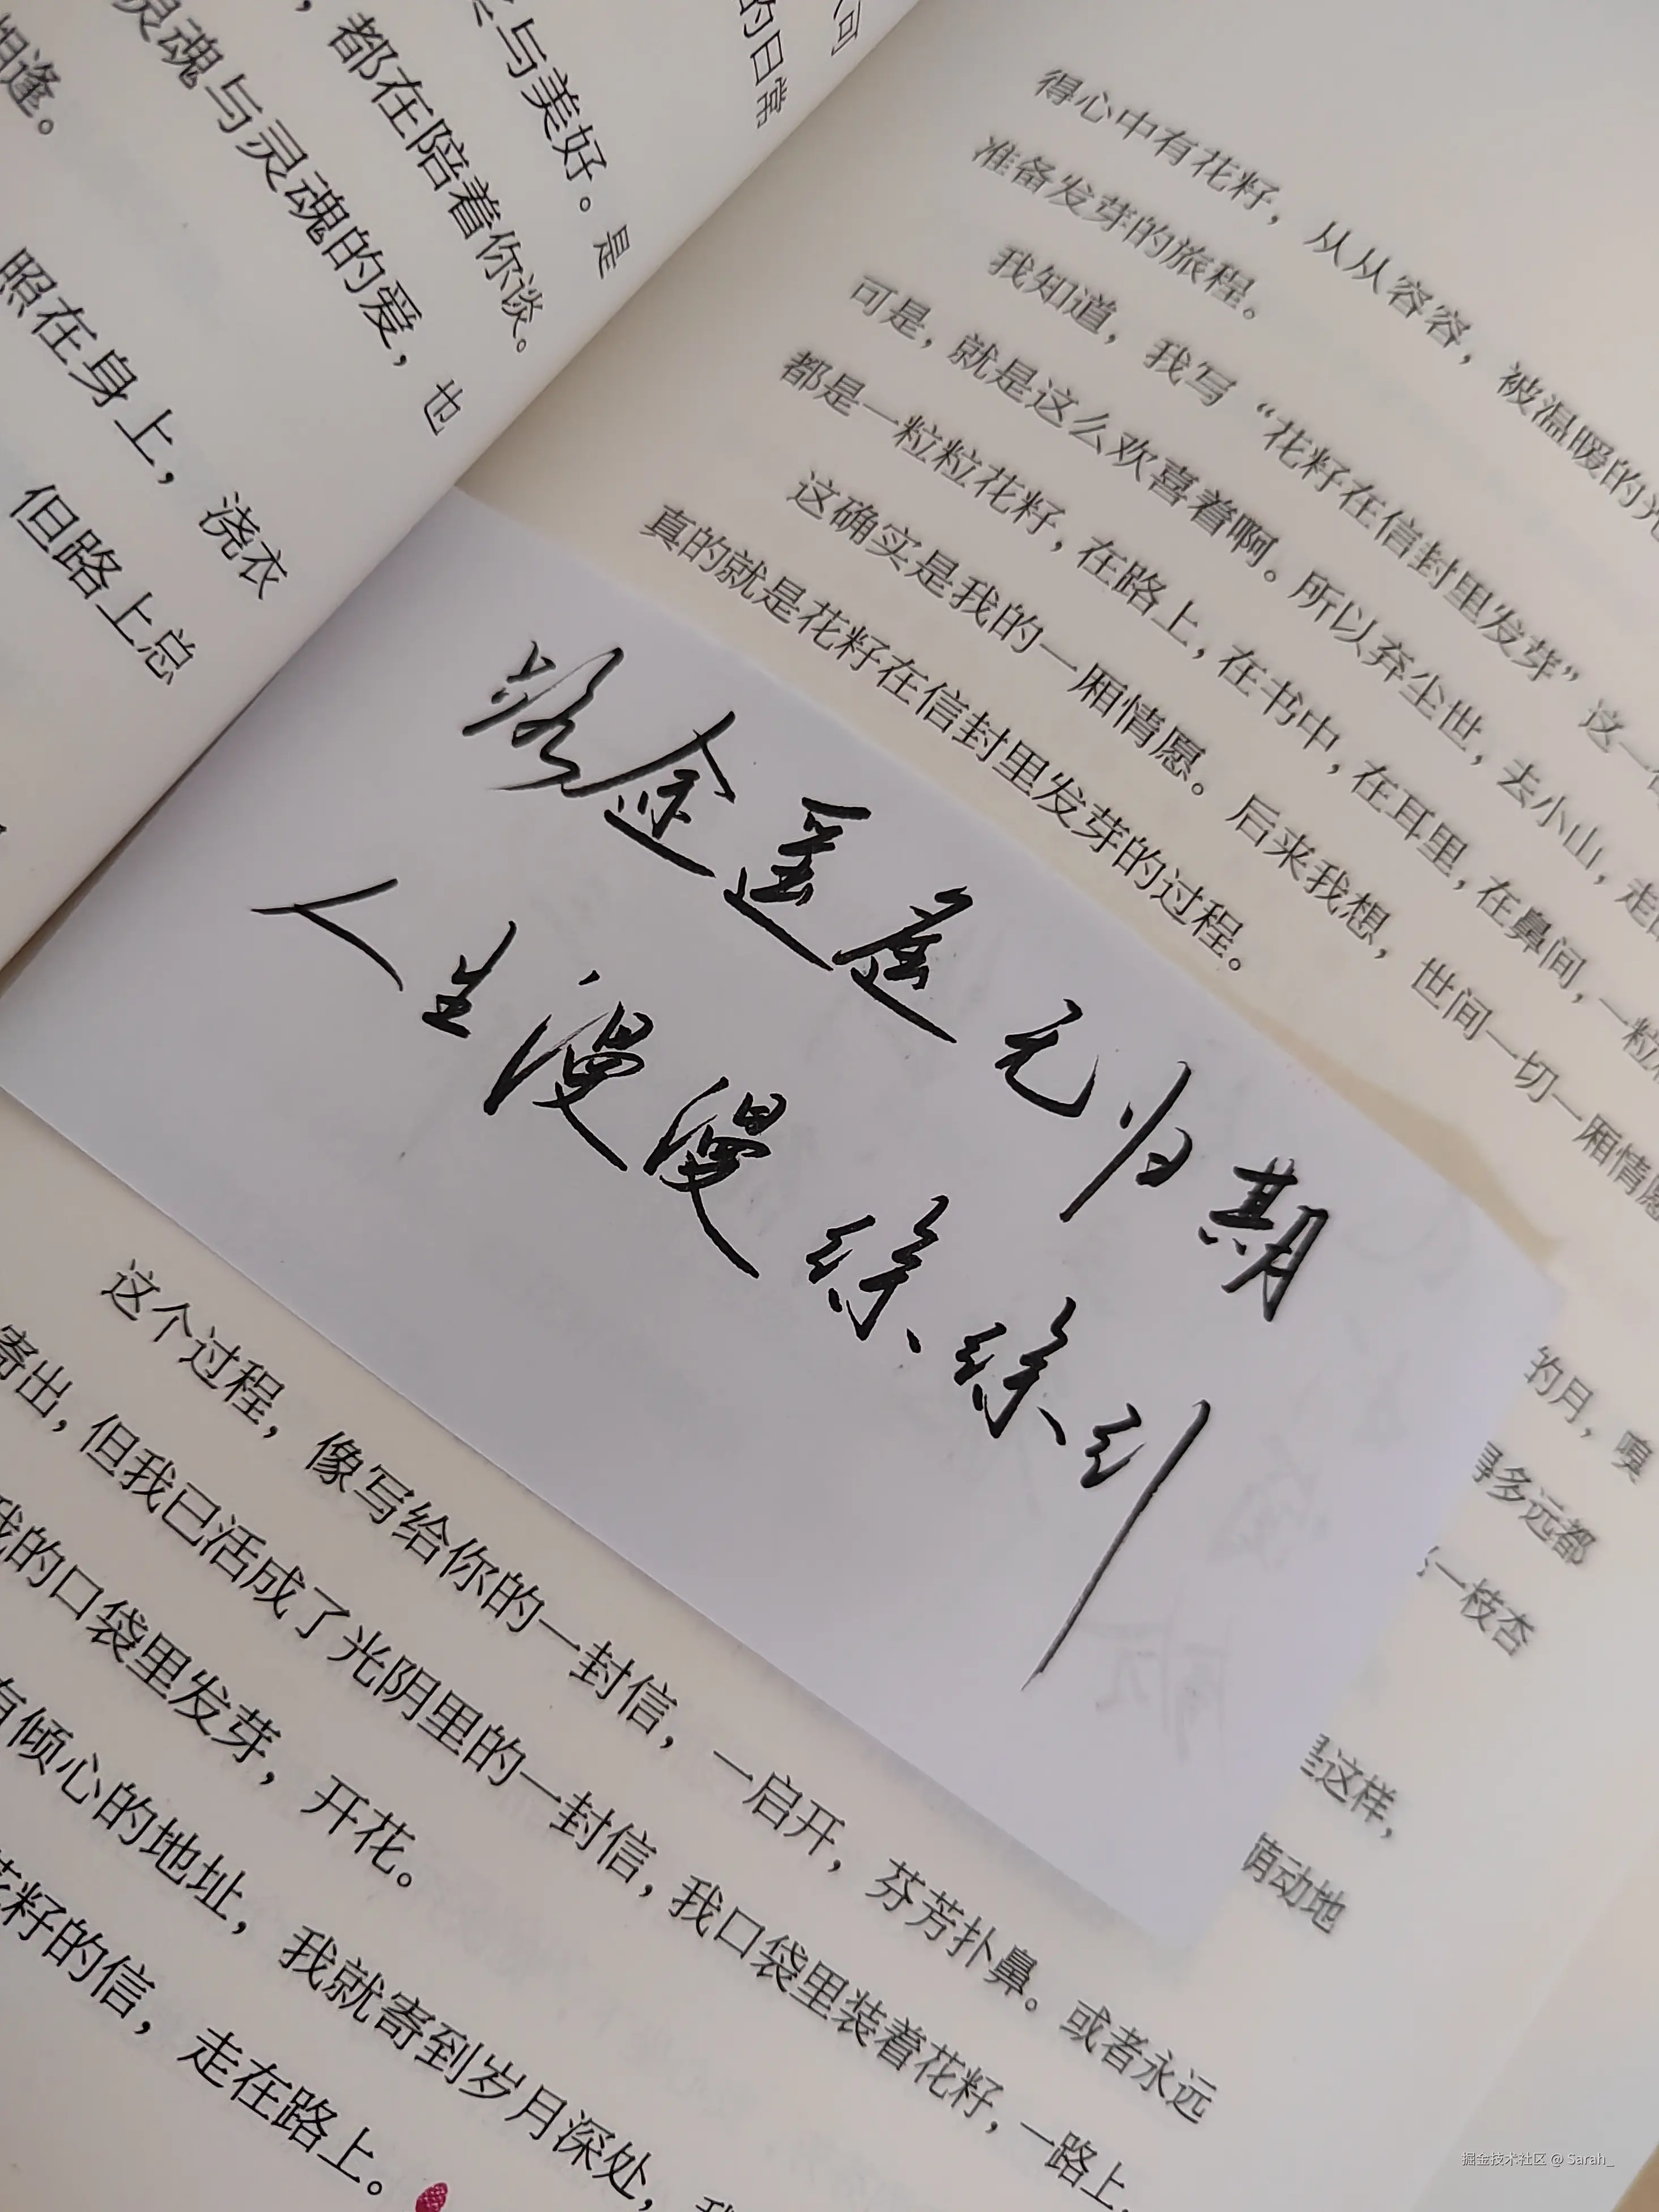 可
的日常
与美好。是
，都在陪着你谈。
灵魂与灵魂的爱，也
相逢。
照在身上，浇衣
但路上总
得心中有花籽，从从容容，被温暖的光
准备发芽的旅程。
我知道，我写“花籽在信封里发芽”这一
可是，就是这么欢喜着啊。所以弃尘世，去小山，走
都是一粒粒花籽，在路上，在书中，在耳里，在鼻间，一粒
这确实是我的一厢情愿。后来我想，世间一切一厢情愿
真的就是花籽在信封里发芽的过程。
路途遥遥无归期
人生漫漫徐徐引
的月，嗅
得多远都
一枝杏
这样，
情动地
这个过程，像写给你的一封信，一启开，芬芳扑鼻。或者永远
寄出，但我已活成了光阴里的一封信，我口袋里装着花籽，一路上，
我的口袋里发芽，开花。
有倾心的地址，我就寄到岁月深处，我
花籽的信，走在路上。
掘金技术社区 @ Sarah_